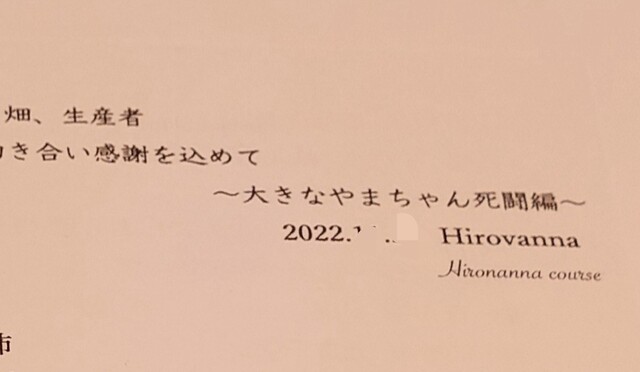 畑、生産者
き合い感謝を込めて
～大きなやまちゃん死闘編～
2022. Hirovanna
Hironanna course
市